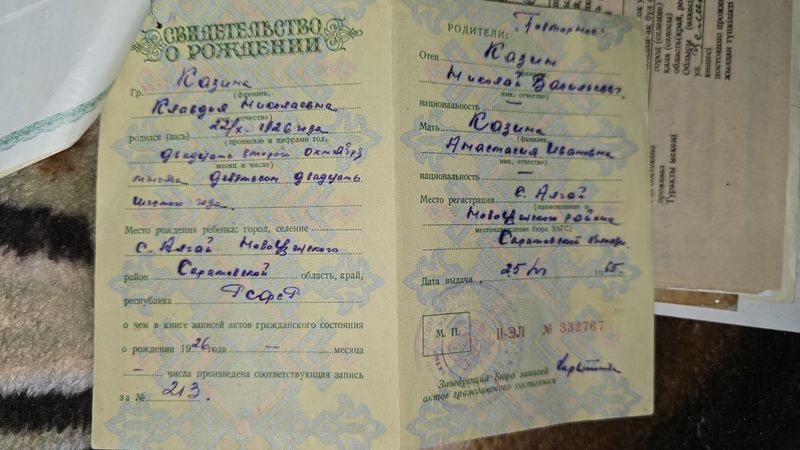 СВИДЕТЕЛЬСТВО
О РОЖДЕНИИ
Гр. Казина
(фамилия,
Клавдия Николаевна
имя, отчество)
родился (лась) 22/X - 1926 года
(прописью и цифрами год,
двадцать второго октября
месяц и число)
тысяча девятьсот двадцать
шестого года.
Место рождения ребенка: город, селение
с. Алгай Новоузенского
район Саратовской область, край,
республика РСФСР
о чем в книге записей актов гражданского состояния
о рождении 1926 года — месяца
— числа произведена соответствующая запись
за № 213.
РОДИТЕЛИ: Повторное
Отец Казин
(фамилия,
Николай Васильевич
имя, отчество)
национальность —
Мать Казина
(фамилия,
Анастасия Ивановна
имя, отчество)
национальность —
Место регистрации с. Алгай
(наименование и
Новоузенского района
местонахождение бюро ЗАГС)
Саратовской
Дата выдачи 25 1965 г.
М. П.
II-ЭЛ № 332767
Заведующий Бюро записей
актов гражданского состояния
город (селение)
қала (селосы)
область (край,
Облысы
ул.
көшесі
постоянно
жылдан
проживал
Тұрақты мекені